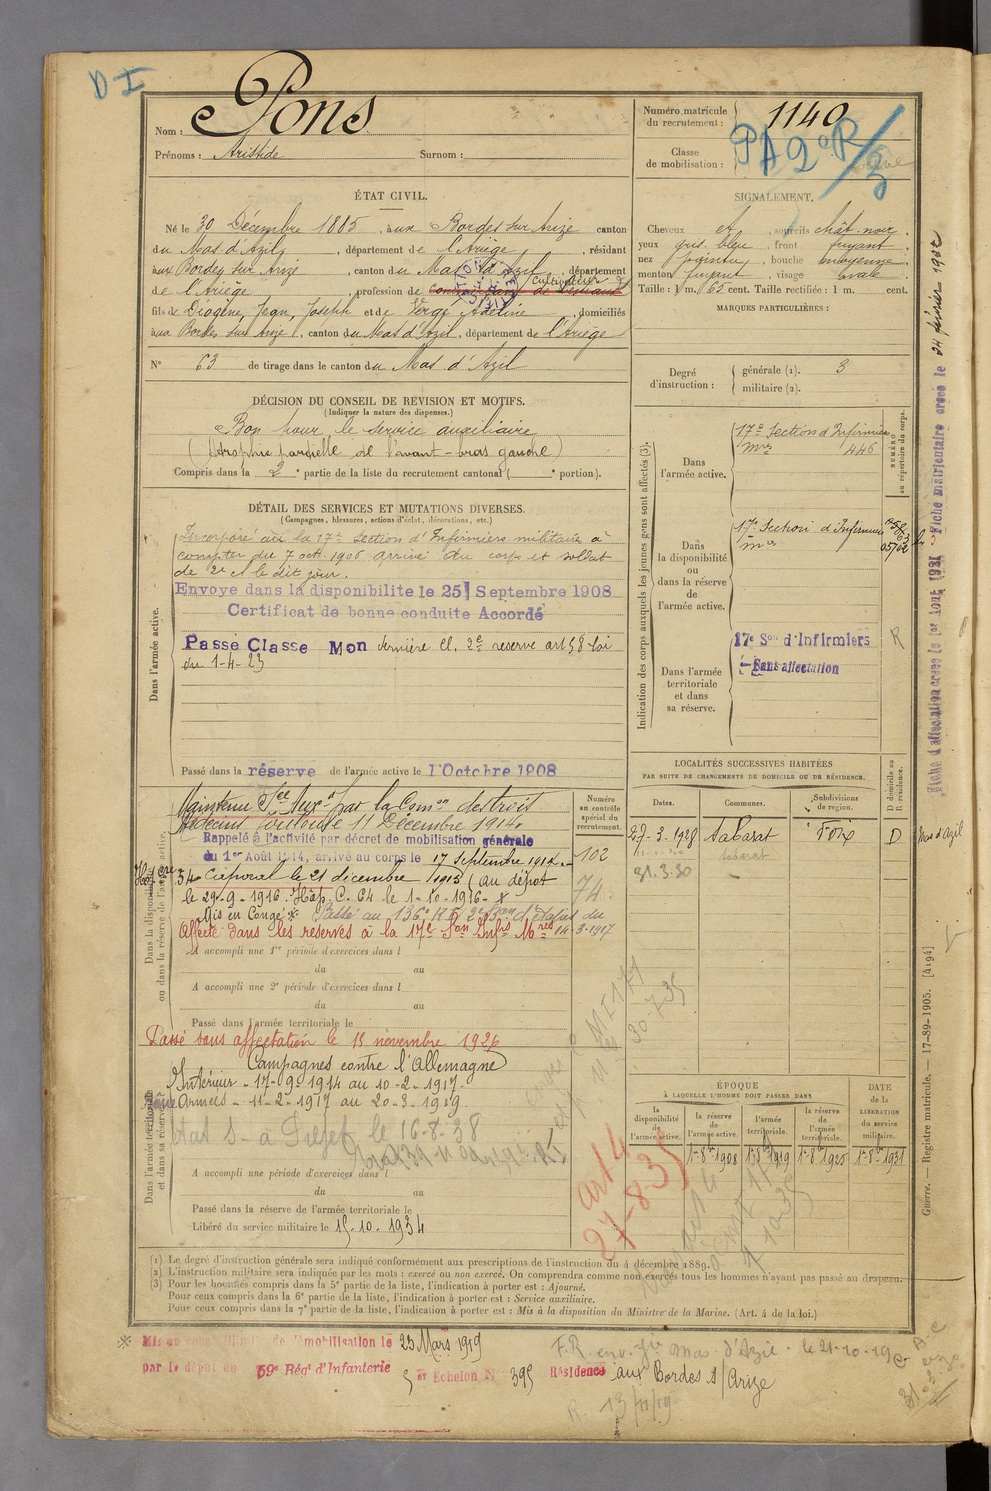 D I
Nom : Pons
Prénoms : Aristide Surnom :
Numéro matricule du recrutement : 1140
Classe de mobilisation :
PA 2e R/3
ÉTAT CIVIL.
Né le 30 Décembre 1885, aux Bordes sur Arize canton
du Mas d'Azil, département de l'Ariège, résidant
aux Bordes sur Arize, canton du Mas d'Azil, département
de l'Ariège, profession de cultivateur
fils de Diogène, Jean, Joseph et de Vergé Adeline, domiciliés
aux Bordes sur Arize, canton du Mas d'Azil, département de l'Ariège
N° 63 de tirage dans le canton du Mas d'Azil
SIGNALEMENT.
Cheveux et, sourcils chât. noir.
yeux gris. bleu, front fuyant.
nez pointu, bouche moyenne.
menton fuyant, visage ovale
Taille : 1 m. 65 cent. Taille rectifiée : 1 m. cent.
MARQUES PARTICULIÈRES :
Degré d'instruction : générale (1). 3
militaire (2).
DÉCISION DU CONSEIL DE RÉVISION ET MOTIFS.
(Indiquer la nature des dispenses.)
Bon pour le service auxiliaire
(Atrophie partielle de l'avant-bras gauche)
Compris dans la 2e partie de la liste du recrutement cantonal ( e portion).
DÉTAIL DES SERVICES ET MUTATIONS DIVERSES.
(Campagnes, blessures, actions d'éclat, décorations, etc.)
Dans l'armée active.
Incorporé à la 17e Section d'Infirmiers militaires à
compter du 7 oct. 1906 arrivé au corps et soldat
de 2e cl le dit jour.
Envoyé dans la disponibilité le 25 Septembre 1908
Certificat de bonne conduite Accordé
Passé Classe Mon dernière cl. 2e reserve art 58 loi
du 1-4-23
Passé dans la réserve de l'armée active le 1 Octobre 1908
Indication des corps auxquels les jeunes gens sont affectés (3).
NUMÉRO au répertoire du corps.
Dans l'armée active.
17e Section d'Infirmiers
mres 446
Dans la disponibilité ou dans la réserve de l'armée active.
17e Section d'Infirmiers
mres
Dans l'armée territoriale et dans sa réserve.
17e Son d'Infirmiers
Sans affectation
R
LOCALITÉS SUCCESSIVES HABITÉES
PAR SUITE DE CHANGEMENTS DE DOMICILE OU DE RÉSIDENCE.
Dates. Communes. Subdivisions de région. D domicile ou R résidence.
27-3-1928 Sabarat Foix D Mas d'Azil
Sabarat
31.3.30
Dans la disponibilité ou dans la réserve de l'armée active.
Numéro au contrôle spécial du recrutement.
Maintenu Sce Auxre par la Comon des trois
Médecins Toulouse 11 Décembre 1914.
Rappelé à l'activité par décret de mobilisation générale
du 1er Août 1914, arrivé au corps le 17 Septembre 1914. 102
Caporal le 21 décembre 1915 (au dépôt
le 29-9-1916. Hôp. C. 64 le 1-10-1916. 74
Mis en Congé Passé au 136e RI 2e Bon d'étapes du
14-3-1917
Affecté dans les réserves à la 17e Son Infrs Mres
A accompli une 1re période d'exercices dans l
du au
A accompli une 2e période d'exercices dans l
du au
Passé dans l'armée territoriale le
Passé sans affectation le 15 novembre 1926
Dans l'armée territoriale et dans sa réserve.
Campagnes contre l'Allemagne
Intérieur - 17-9-1914 au 10-2-1917.
Armées - 11-2-1917 au 20-3-1919.
Etat S - à Préfet le 16-8-38
A accompli une période d'exercices dans l
du au
Passé dans la réserve de l'armée territoriale le
Libéré du service militaire le 15-10-1934
30-7-35
art 4
27-8-35
ÉPOQUE
À LAQUELLE L'HOMME DOIT PASSER DANS
la disponibilité de l'armée active. la réserve de l'armée active. l'armée territoriale. la réserve de l'armée territoriale.
DATE de la LIBÉRATION du service militaire.
1er 8bre 1908 1er 8bre 1919 1er 8bre 1925 1er 8bre 1931
(1) Le degré d'instruction générale sera indiqué conformément aux prescriptions de l'instruction du 4 décembre 1889.
(2) L'instruction militaire sera indiquée par les mots : exercé ou non exercé. On comprendra comme non exercés tous les hommes n'ayant pas passé au drapeau.
(3) Pour les hommes compris dans la 5e partie de la liste, l'indication à porter est : Ajourné.
Pour ceux compris dans la 6e partie de la liste, l'indication à porter est : Service auxiliaire.
Pour ceux compris dans la 7e partie de la liste, l'indication à porter est : Mis à la disposition du Ministre de la Marine. (Art. 4 de la loi.)
Mis en congé illimité de démobilisation le 23 Mars 1919
par le dépôt du 59e Régt d'Infanterie 5 e Echelon N° 395 Résidence aux Bordes s/ Arize
F.R. env. Mas d'Azil - le 21-10-19
R. 13/11/19
Fiche d'affectation créée le 1er Août 1921
Fiche matriculaire créée le 24 février 1902
Guerre. — Registre matricule. — 17-89-1905. [4194]